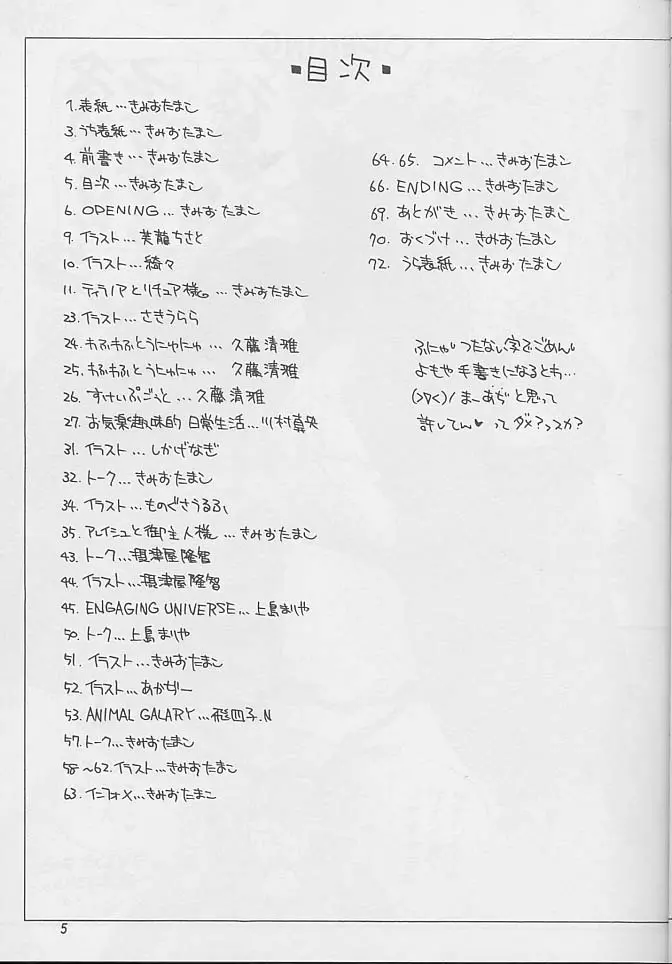 ▪目次▪
1. 表紙…きみおたまこ
3. うら表紙…きみおたまこ
4. 前書き…きみおたまこ
5. 目次…きみおたまこ
6. OPENING…きみおたまこ
9. イラスト…美龍ちさと
10. イラスト…綺々
11. ティラノアとリチュア様。…きみおたまこ
23. イラスト…さきうらら
24. わふわふとうにゅにゅ…久藤清雅
25. わふわふとうにゅにゅ…久藤清雅
26. すけいぷごっと…久藤清雅
27. お気楽趣味的日常生活…川村真央
31. イラスト…しかげなぎ
32. トーク…きみおたまこ
34. イラスト…ものぐさうるふ
35. アレイシュと御主人様…きみおたまこ
43. トーク…摂津屋隆智
44. イラスト…摂津屋隆智
45. ENGAGING UNIVERSE…上島まりや
50. トーク…上島まりや
51. イラスト…きみおたまこ
52. イラスト…あかぢー
53. ANIMAL GALARY…飛四子.N
57. トーク…きみおたまこ
58~62. イラスト…きみおたまこ
63. インフォメ…きみおたまこ
64.65. コメント…きみおたまこ
66. ENDING…きみおたまこ
69. あとがき…きみおたまこ
70. おくづけ…きみおたまこ
72. うら表紙…きみおたまこ
ふにゃ つたない字でごめん
よもや手書きになるとわ…
(>マ<)/ まーあぢと思って
許してん♥ ってダメ?っスか?
5